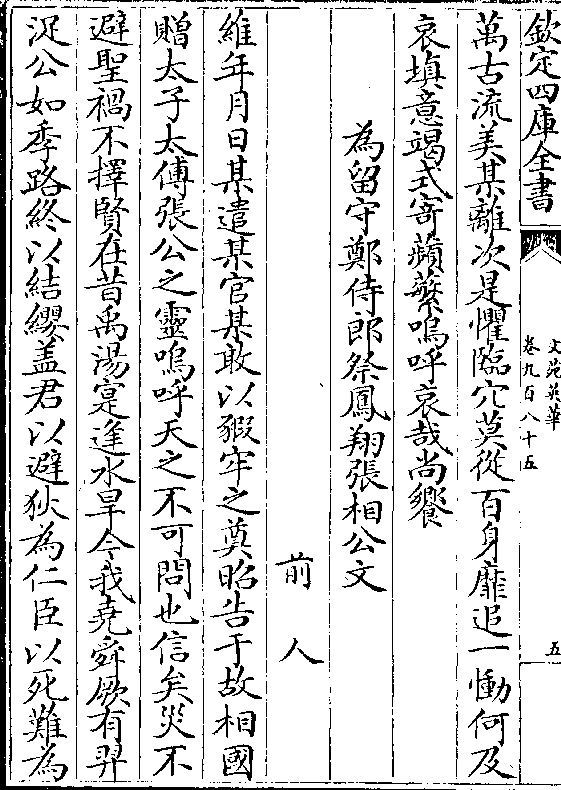 欽定四庫全書
文苑英華
卷九百八十五
五
萬古流美某離次是懼臨穴莫從百身靡追一慟何及
哀填意竭式寄蘋蘩嗚呼哀哉尚饗
為留守鄭侍郎祭鳳翔張相公文
前人
維年月日某遣某官某敢以豭牢之奠昭告于故相國
贈太子太傅張公之靈嗚呼天之不可問也信矣災不
避聖禍不擇賢在昔禹湯寔逢水旱今我堯舜厥有羿
浞公如季路終以結纓盖君以避狄為仁臣以死難為